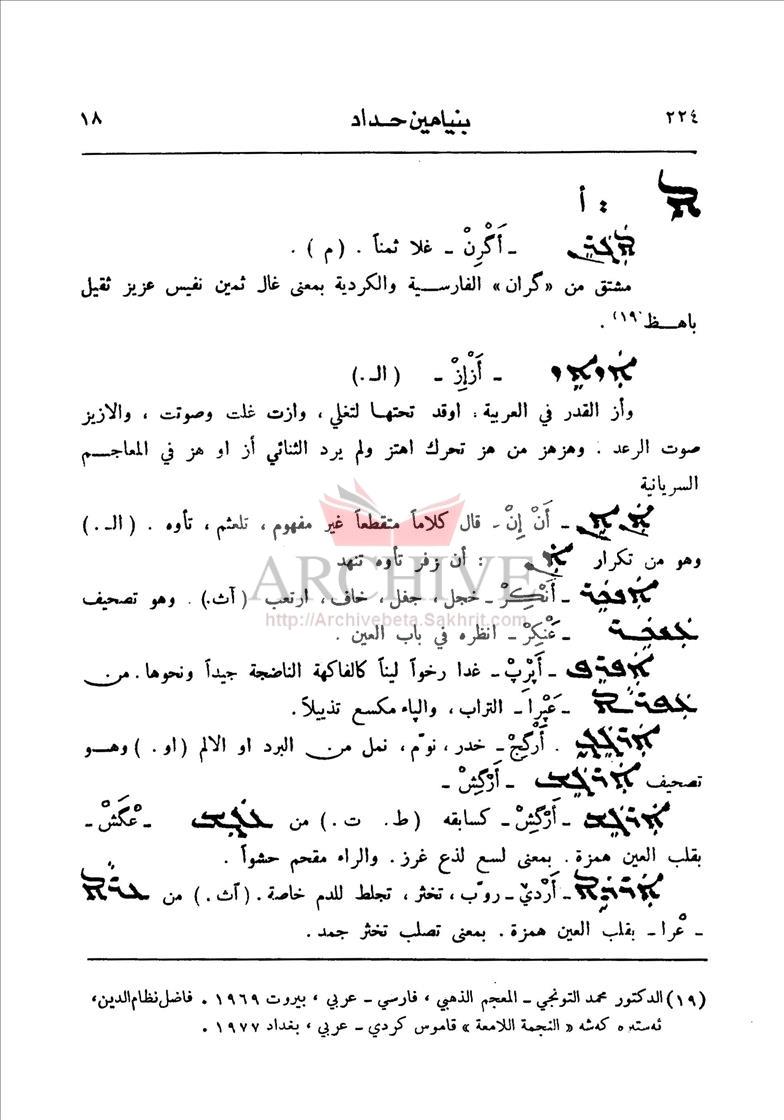 ٢٢٤ بنيامين حداد ١٨
ܐ : أ
ܐܓܪܢ - أَكْرِنْ - غلا ثمناً . ( م ) .
مشتق من «گران» الفارسية والكردية بمعنى غال ثمين نفيس عزيز ثقيل
باهظ (١٩) .
ܐܙܐܙ - أَزْإِزْ - ( الـ . )
وأز القدر في العربية : اوقد تحتها لتغلي ، وازت غلت وصوتت ، والازيز
صوت الرعد : وهزهز من هز تحرك اهتز ولم يرد الثنائي أز او هز في المعاجم
السريانية
ܐܢܐܢ - أَنْ إِنْ - قال كلاماً متقطعاً غير مفهوم ، تلعثم ، تأوه . ( الـ . )
وهو من تكرار ܐܢ : أن زفر تأوه تنهد
ARCHIVE
- أَنْكِرْ - خجل ، جفل ، خاف ، ارتعب ( آث. ) . وهو تصحيف
http://Archivebeta.Sakhrit.com
- عَنْكِرْ - انظره في باب العين .
- أَپْرِپْ - غدا رخواً ليناً كالفاكهة الناضجة جيداً ونحوها . من
ܥܦܪܐ - عَپْرا - التراب ، والپاء مكسع تذييلاً .
. أَرْگِجْ - خدر ، نوّم ، نمل من البرد او الالم ( او . ) وهو
تصحيف ܐܪܓܫ - أَرْگِشْ -
ܐܪܓܫ - أَرْگِشْ - كسابقه ( ط . ت . ) من ܥܓܫ - عْكَشْ -
بقلب العين همزة . بمعنى لسع لذع غرز . والراء مقحم حشواً .
- أَرْدِيْ - روّب ، تخثر ، تجلط للدم خاصة . ( آث . ) من
- عْرا - بقلب العين همزة . بمعنى تصلب تخثر جمد .
(١٩) الدكتور محمد التونجي - المعجم الذهبي ، فارسي - عربي ، بيروت ١٩٦٩ . فاضل نظام الدين ،
ئەستەرە كەشە « النجمة اللامعة » قاموس كردي - عربي ، بغداد ١٩٧٧ .